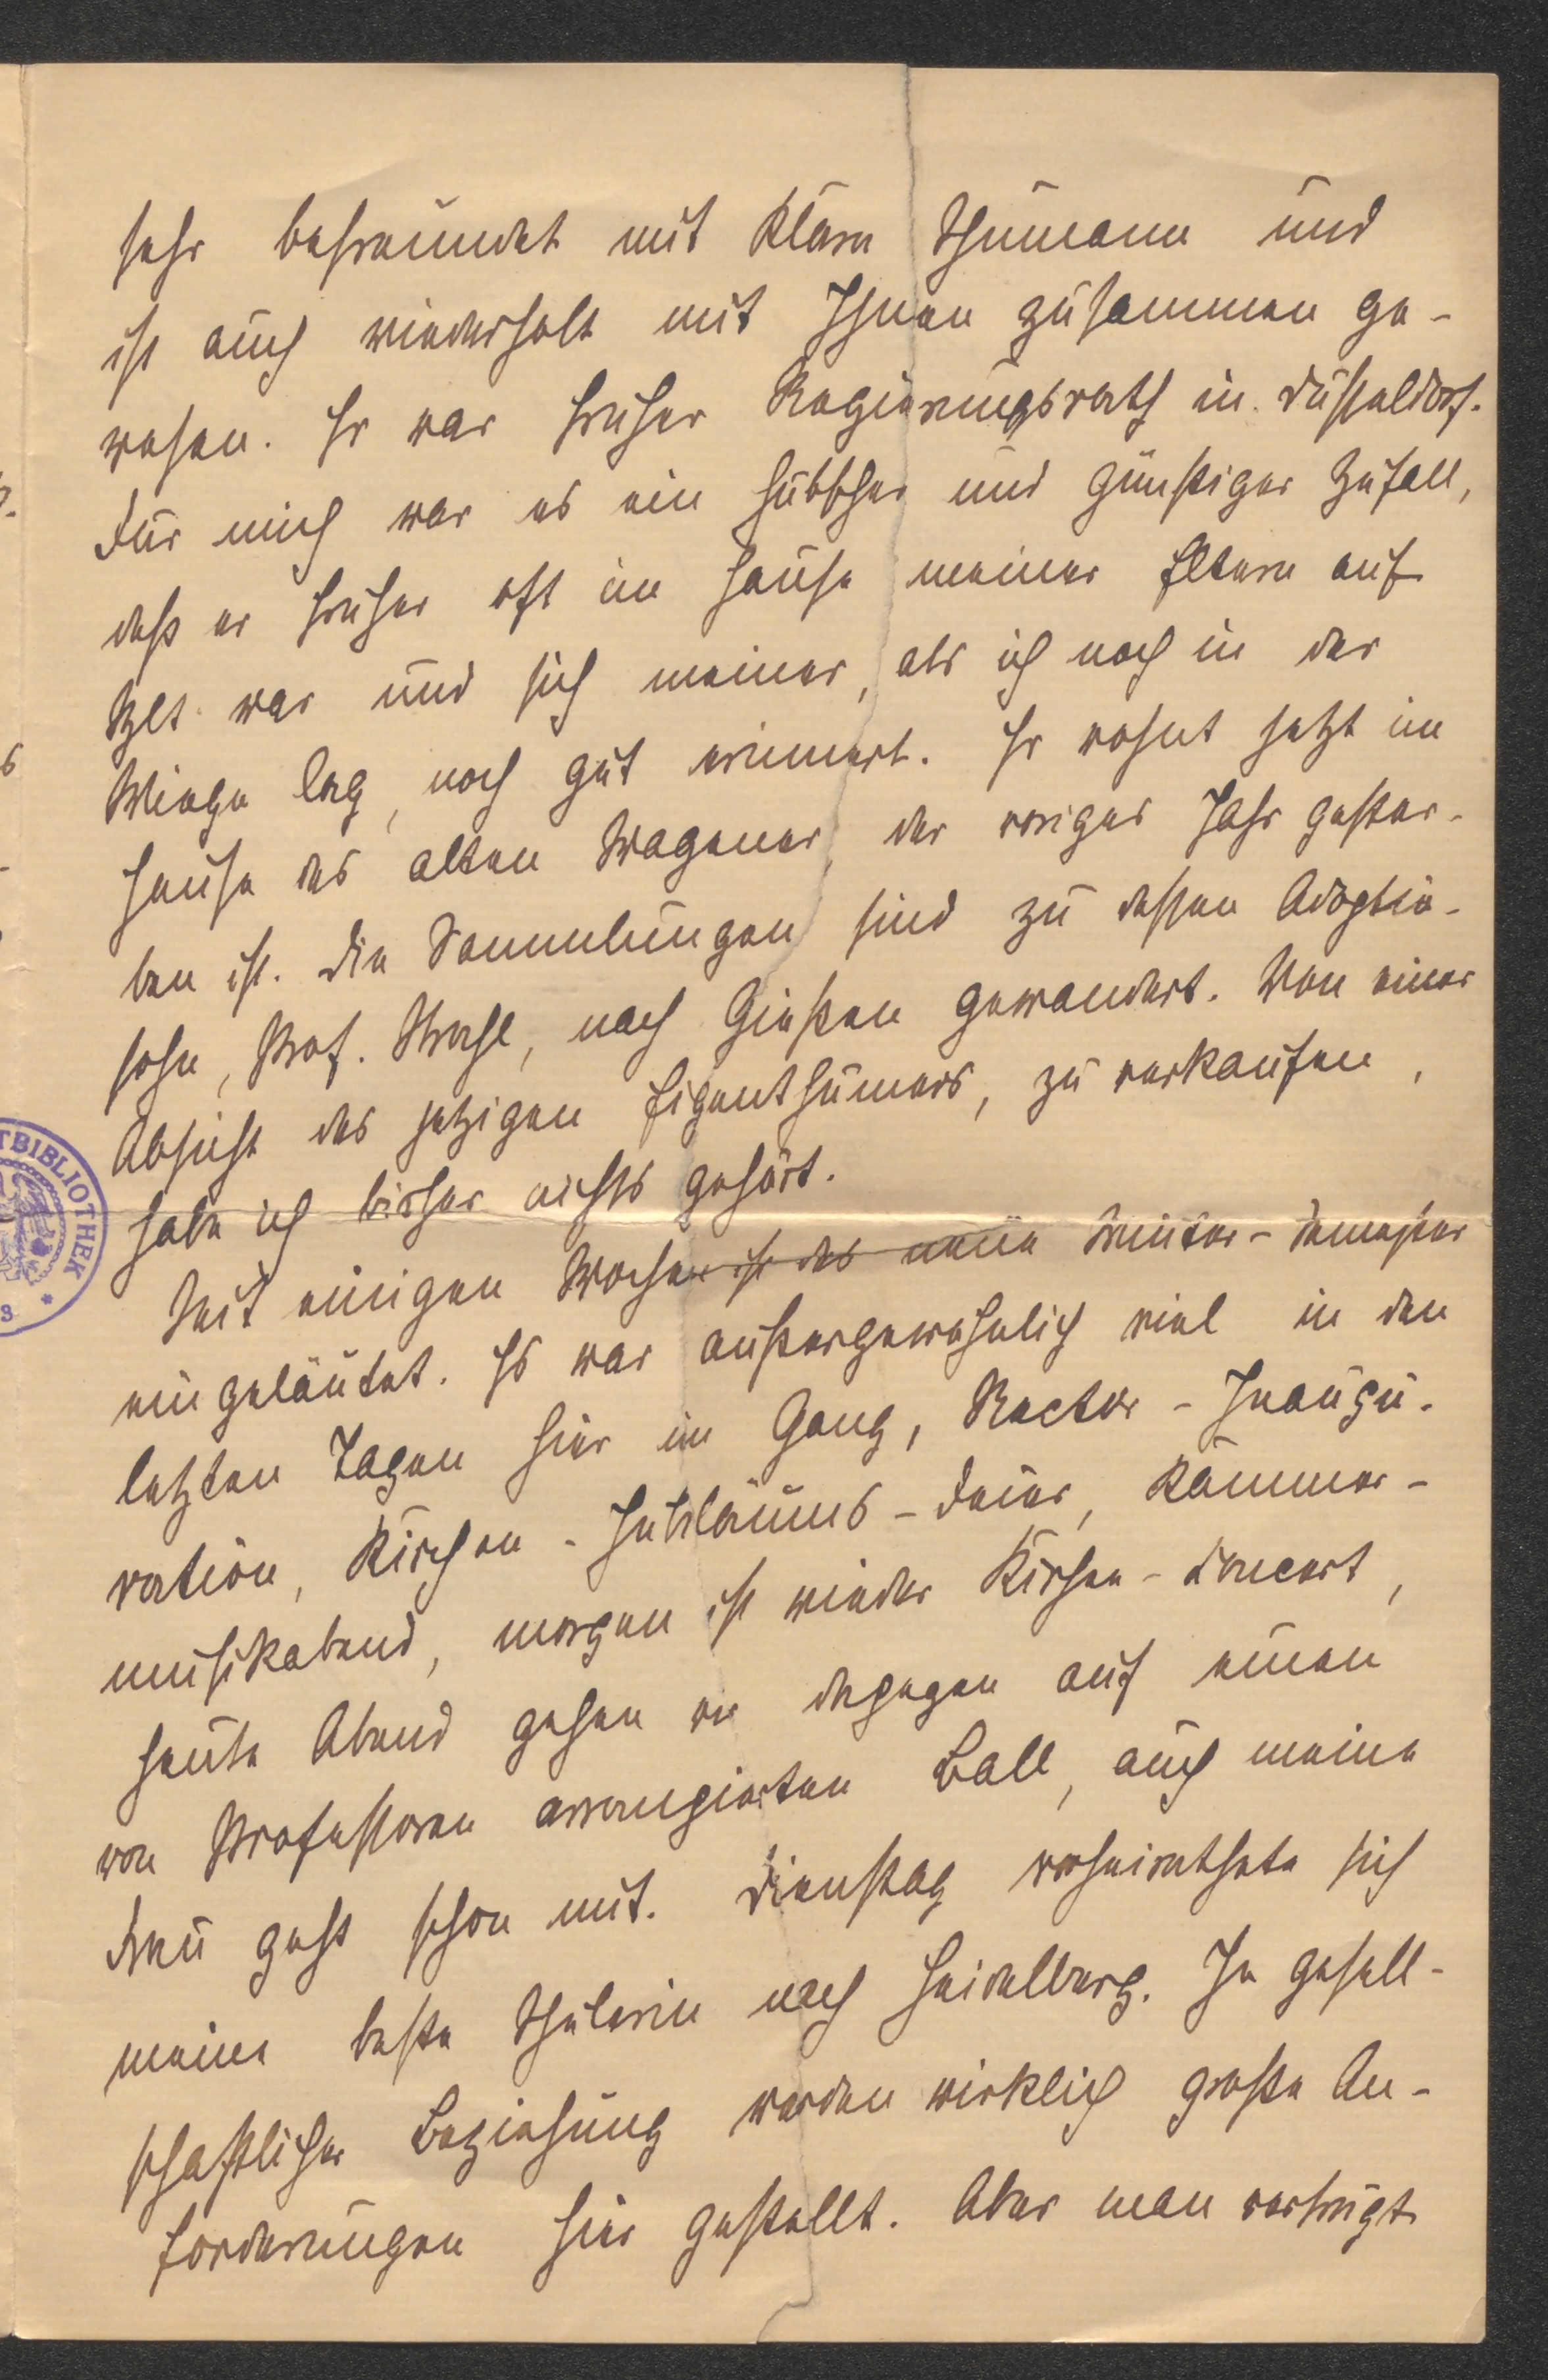 sehr befreundet mit Klara Schumann und
ist auch wiederholt mit Ihnen zusammen ge-
wesen. Er war früher Regierungsrath in Düsseldorf.
Für mich war es ein hübscher und günstiger Zufall,
daß er früher oft im Hause meiner Eltern auf
Sylt war und sich meiner, als ich noch in der
Wiege lag, noch gut erinnert. Er wohnt jetzt im
Hause des alten Wagener, der voriges Jahr gestor-
ben ist. Die Sammlungen sind zu dessen Adoptiv-
sohn, Prof. Strahl, nach Gießen gewandert. Von einer
Absicht des jetzigen Eigenthümers, zu verkaufen,
habe ich bisher nichts gehört.
Seit einigen Wochen ist das neue Winter-Semester
eingeläutet. Es war außergewöhnlich viel in den
letzten Tagen hier im Gang, Rector-Inaugu-
ration, Kirchen-Jubiläums-Feier, Kammer-
musikabend, morgen ist wieder Kirchen-Concert,
heute Abend gehen wir dagegen auf einen
von Professoren arrangierten Ball, auch meine
Frau geht schon mit. Dienstag verheirathete sich
meine beste Schülerin nach Heidelberg. In gesell-
schaftlicher Beziehung werden wirklich große An-
forderungen hier gestellt. Aber man verträgt
TBIBLIOTHEK